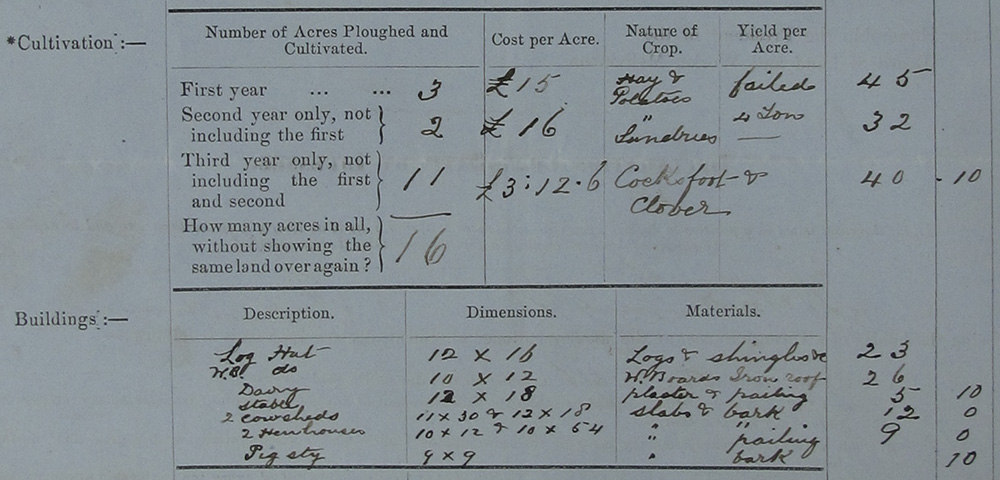 *Cultivation:—
Number of Acres Ploughed and Cultivated. Cost per Acre. Nature of Crop. Yield per Acre.
First year ... ... 3 £15 Hay & Potatoes failed 45
Second year only, not including the first } 2 £16 " Sundries 4 Ton — 32
Third year only, not including the first and second } 11 £3:12.6 Cocksfoot & Clover 40 - 10
How many acres in all, without showing the same land over again? } 16
Buildings:—
Description. Dimensions. Materials.
Log Hut 12 x 16 Logs & shingles 23
W.B. do 10 x 12 W. Boards Iron roof 26
Dairy 12 x 18 plaster & paling 5 10
Stable
2 cowsheds 11 x 30 & 12 x 18 slabs & bark 12 0
2 Henhouses 10 x 12 & 10 x 54 " paling 9 0
Pig sty 9 x 9 " bark 10